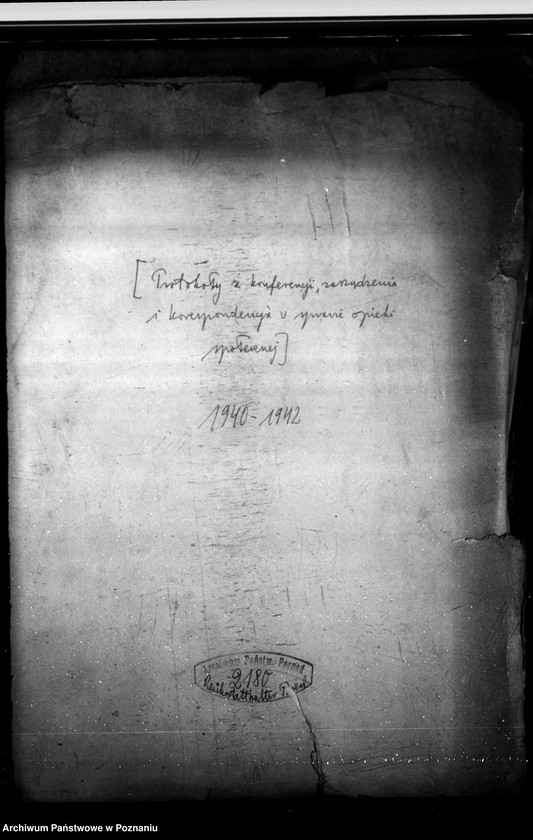 [Protokoły z konferencji, zarządzenia
i korespondencja w sprawie opieki
społecznej]
1940-1942
Archiwum Państw. Poznań
2180
Reichsstatthalter
Archiwum Państwowe w Poznaniu